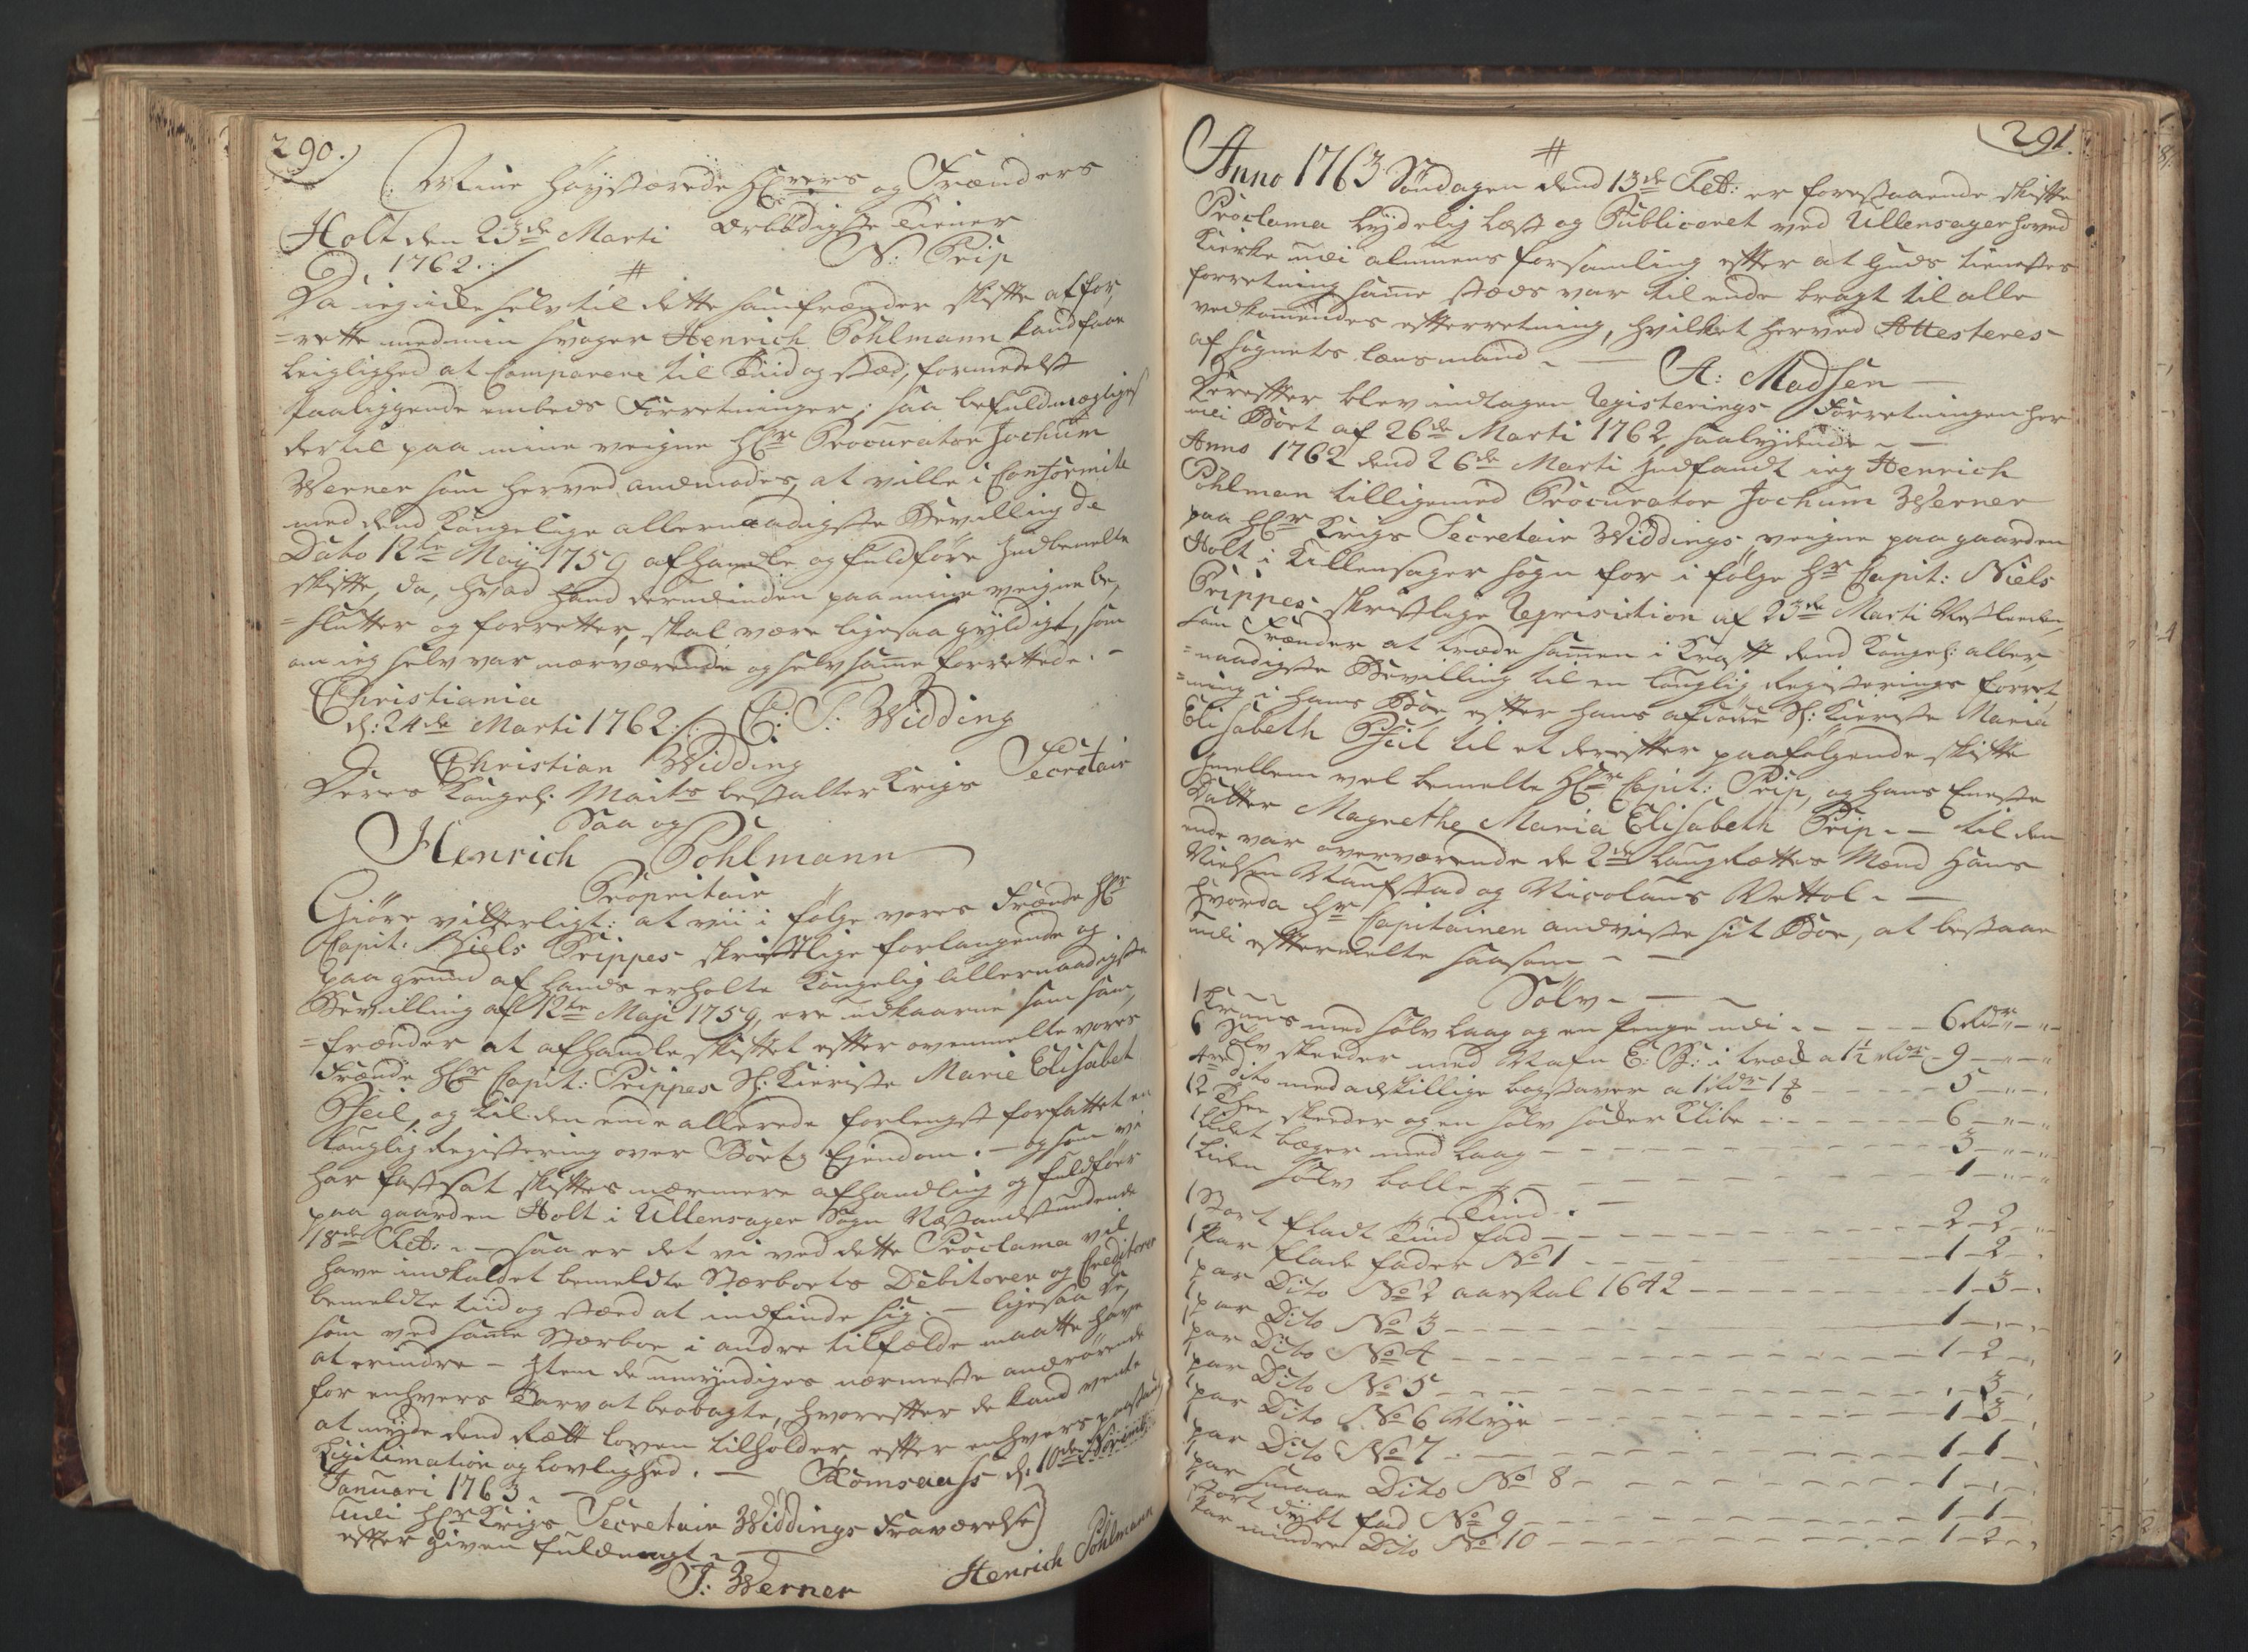 290.
Mine Høystærede H:rrers og Frænders
ærbødigste Tiener
Holt den 23de Marti
N: Prip
1762 ./.
Da ieg icke selv til dette samfrænder skifte at for,
=rette med min Svoger Henrich Pohlmann kand faae
leiglighed at Comparere til Tiid og stæd, formedelst
paaliggende embeds Forretninger; saa befuldmægtiges
der til paa mine veigne Hr Procurator Jochum
Werner som herved andmodes, at ville i Conformite
med dend Kongelige allernaadigste Bevilling De
Dato 12te Maij 1759 afhandle og fuldføre Indbemelte
skifte, da, hvad hand derudinden paa mine veigne be,
=slutter og forretter, skal være ligesaa gyldigt, som
om ieg selv var nærværende og selv samme forrettede. -
Christiania
d: 24de Marti 1762 ./. C: T: Widding
Christian Widding
Deres Kongel: Maits bestalter Krigs Secretair
Saa og
Henrich Pohlmann
Propritair
Giøre vitterligt: at vii i følge vores Frænde Hr
Capit: Niels Prippes skriftlige forlangende og
paa grund af hands erholte Kongelig Allernaadigste
Bevilling af 12te Maji 1759, ere udkaarne som sam,
=frænder at afhandle skiftet efter ovenmelte vores
Frænde Hr Capit: Prippes Sl: Kieriste Marie Elisabet
Pfeil, og til den ende allerede forlengst forfattet en
lauglig Registering over Boets Ejendom. - og som vi
har fastsat skiftes nærmere afhandling og fuldfør
paa gaarden Holt i Ullensager Sogn Næstandstundende
18de Feb: . - saa er det vi ved dette Proclama vil
have indkaldet bemeldte Stærboets Debitorer og Creditorer
bemeldte tiid og stæd at indfinde sig. - ligesaa De,
som ved samme Stærboe i andre tilfælde maatte have
at erindre - Item de umyndiges nærmeste andrørende
for enhvers Tarv at beobagte, hvorefter de kand vente
at nyde dend Rætt loven tilholder, efter enhvers paastand
Legitimation og lovlighed. - Romsaass d: 10de
Januari 1763 .
Udi Hr Krigs Secretair Widdings Fraværelse)
efter given fuldmagt .
J: Werner Henrich Pohlmann
291.
Anno 1763 Søndagen dend 13de Feb: er forestaaende skifte
Proclama lydelig læst og Publiceret ved Ullensager hoved
Kierke udi almuens forsamling efter at Guds tienestes
forretning samme stæds var til ende bragt til alle
vedkommendes efterretning, hvilket herved Attesteres
af Sognets lænsmand -
A: Madsen
Derefter blev indtagen Registerings Forretningen her
udi Boet af 26de Marti 1762 saalydende -
Anno 1762 dend 26de Marti Indfandt ieg Henrich
Pohlman tilligemed Procurator Jochum Werner
paa Hr Krigs Secretair Widdings veigne paa gaarden
Holt i Ullensager Sogn for i følge Hr Capit: Niels
Prippes skriftlige Reqvisition af 23de Marti
Sam Frænder at træde sammen i Kraft dend Kongel: aller,
=naadigste Bevilling til en lauglig Registerings Forret,
=ning i hans Boe efter hans afdøde Sl: Kieriste Maria
Elisabeth Pfeil til et derefter paafølgende skifte
Imellem vel bemelte Hr Capit: Prip, og hans Eneste
Datter Magrethe Maria Elisabeth Prip. - til den
ende var overværende de 2de laugRættes Mænd Hans
Nielsen Naufstad og Nicolaus Vettol . -
Hvorda Hr Capitainen andviste sit Boe, at bestaae
udi eftermelte saasom -
Sølv -
1 Kruus med sølv laag og en Penge udi - 6 Rdr - "
6 Sølv skeeder med Nafn E: P: i træk a 1½ Rdr - 9 - " - "
4re Dito med adskillige bogstaver a 1 Rdr 1 - 5 - " -
12 Thee skeeder og en sølv sucker Klibe - 6 - " - "
1 lidet bæger med laag - 3 - " - "
1 liden sølv bolle - 1 - " - "
Tind . -
1 Stort fladt Tind fad - 2 - 2 - "
1 par flade fader No 1 - 1 - 2 -
1 par Dito No 2 aarstal 1642 - 1 - 3 -
1 par Dito No 3 - 1 - " -
1 par Dito No 4 - 1 - 2 -
1 par Dito No 5 - " - 3 -
1 par Dito No 6 Nye - 1 - 3 -
1 par Dito No 7 - 1 - 1 -
1 par smaae Dito No 8 - 1 - " -
1 stort dybt fad No 9 - 1 - 1 -
1 par mindre Dito No 10 - 1 - 2 -